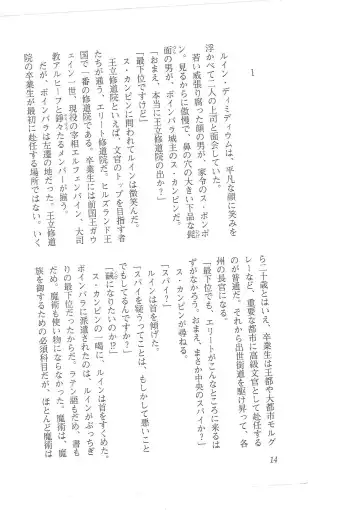 1
ルイン・ディミディウムは、平凡な顔に笑みを
浮かべて二人の上司と面会していた。
若いが威張り腐った顔の男が、家令のス・ボンボ
ン。見るからに傲慢で、鼻の穴の大きい下品な髭
面の男が、ボインバラ城主のス・カンビンだ。
「おまえ、本当に王立修道院の出か？」
「最下位ですけど」
ス・カンビンに問われてルインは微笑んだ。
王立修道院といえば、文官のトップを目指す者
たちが通う、エリート修道院だ。ヒルズランド王
国で一番の修道院である。卒業生には前国王ガウ
ェイン一世、現役の宰相エルフェンバイン、大司
教アルヒーフと錚々たるメンバーが揃う。
だが、ボインバラは左遷の地だった。王立修道
院の卒業生が最初に赴任する場所ではない。いく
ら二十歳とはいえ、卒業生は王都や大都市モルグ
レーなど、重要な都市に高級文官として赴任する
のが普通だ。それから出世街道を駆け昇って、各
州の長官になる。
「最下位でも、エリートがこんなところに来るは
ずがなかろう。おまえ、まさか中央のスパイか？」
ス・カンビンが尋ねる。
「スパイ？」
ルインは首を傾げた。
「スパイを疑うってことは、もしかして悪いこと
でもしてるんですか？」
「馘になりたいのか？」
ス・カンビンの一喝に、ルインは首をすくめた。
ボインバラに派遣されたのは、ルインがぶっちぎ
りの最下位だったからだ。ラテン語もだめ、書も
だめ、魔術も使い物にならなかった。魔術は、魔
族を御するための必須科目だが、ほとんど魔術は
14